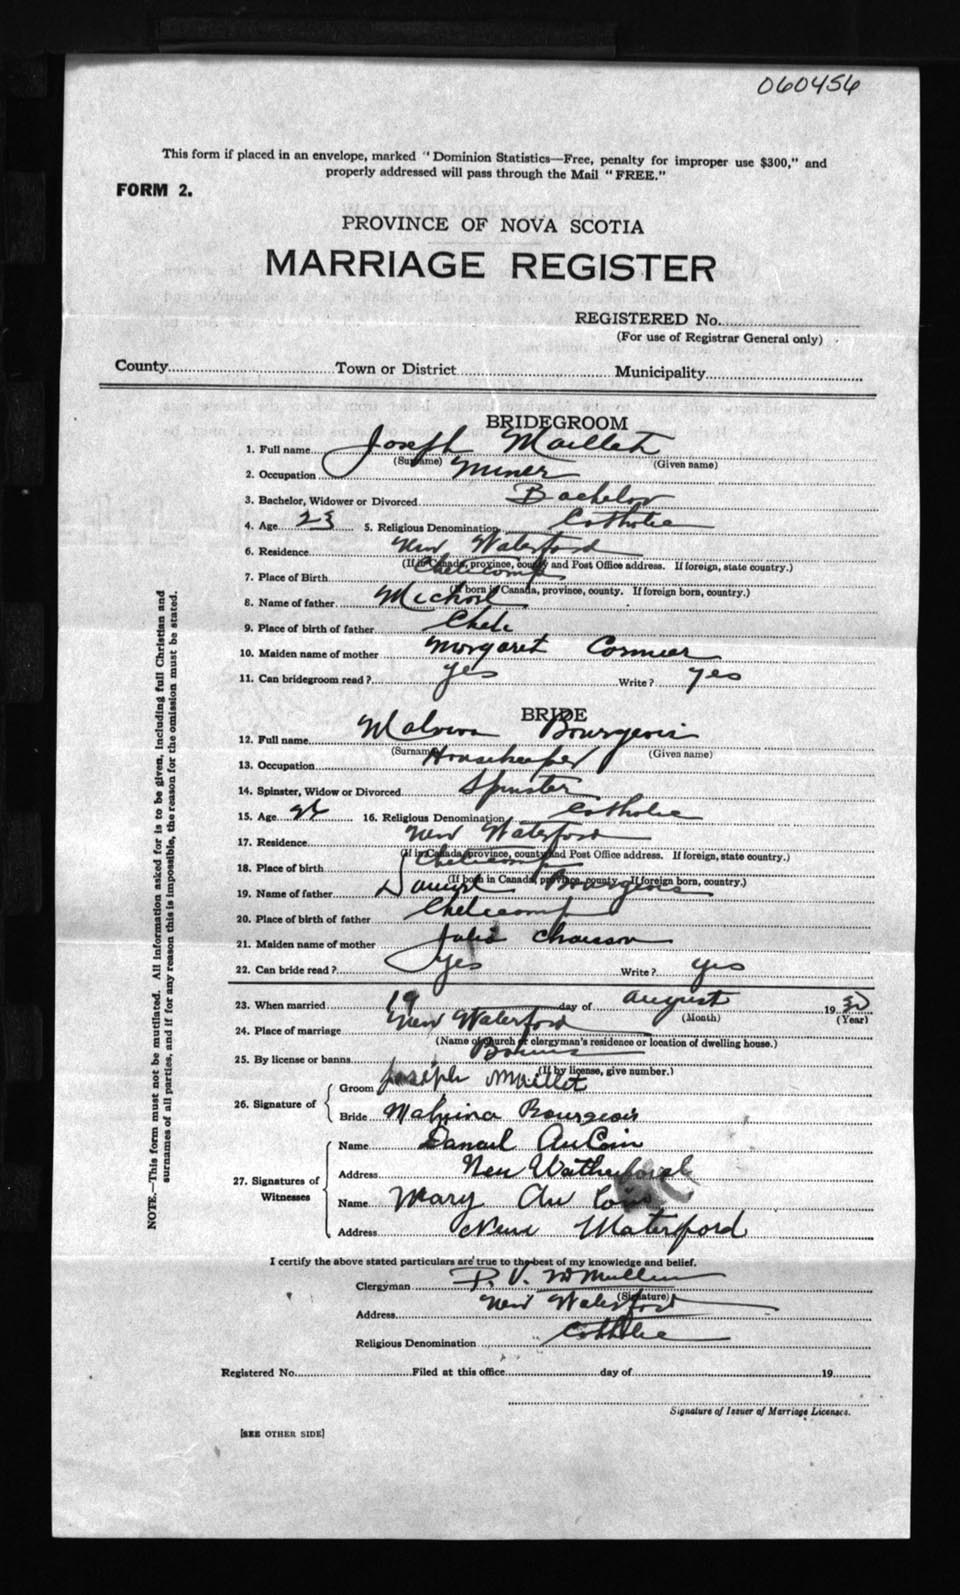 060456
This form if placed in an envelope, marked "Dominion Statistics—Free, penalty for improper use $300," and
properly addressed will pass through the Mail "FREE."
FORM 2.
PROVINCE OF NOVA SCOTIA
MARRIAGE REGISTER
REGISTERED No.
(For use of Registrar General only)
County Town or District Municipality
BRIDEGROOM
1. Full name Joseph Maillet
(Surname) (Given name)
2. Occupation Miner
3. Bachelor, Widower or Divorced Bachelor
4. Age 23 5. Religious Denomination Catholic
6. Residence New Waterford
(If in Canada, province, county and Post Office address. If foreign, state country.)
7. Place of Birth Cheticamp
(If born in Canada, province, county. If foreign born, country.)
8. Name of father Michael
9. Place of birth of father Cheti
10. Maiden name of mother Margaret Cormier
11. Can bridegroom read? yes Write? yes
BRIDE
12. Full name Malvina Bourgeois
(Surname) (Given name)
13. Occupation Housekeeper
14. Spinster, Widow or Divorced Spinster
15. Age 16. Religious Denomination Catholic
17. Residence New Waterford
(If in Canada, province, county and Post Office address. If foreign, state country.)
18. Place of birth Cheticamp
(If born in Canada, province, county. If foreign born, country.)
19. Name of father Bourgeois
20. Place of birth of father Cheticamp
21. Maiden name of mother Julie Chaisson
22. Can bride read? yes Write? yes
23. When married 19 day of August 1930
(Month) (Year)
24. Place of marriage New Waterford
(Name of church or clergyman's residence or location of dwelling house.)
25. By license or banns Banns
(If by license, give number.)
26. Signature of
Groom Joseph Maillet
Bride Malvina Bourgeois
27. Signatures of Witnesses
Name AuCoin
Address New
Name Mary Au Coin
Address New Waterford
I certify the above stated particulars are true to the best of my knowledge and belief.
Clergyman P. V. McMullen
(Signature)
Address New Waterford
Religious Denomination Catholic
Registered No. Filed at this office day of 19
Signature of Issuer of Marriage Licenses.
[SEE OTHER SIDE]
NOTE.—This form must not be mutilated. All information asked for is to be given, including full Christian and
surnames of all parties, and if for any reason this is impossible, the reason for the omission must be stated.